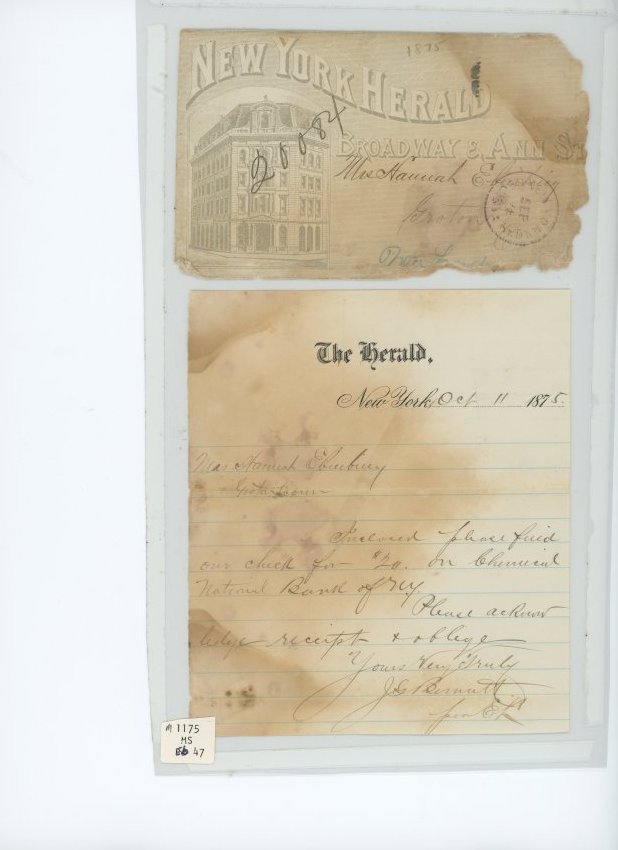 1875
NEW YORK HERALD
20084
BROADWAY & ANN ST
Mrs Hannah
Groton
SEP
The Herald.
New York, Oct 11 1875.
Mrs Hannah Ebierbing
Groton Conn
Inclosed please find
our check for $20. on Chemical
National Bank of NY.
Please acknow
ledge receipt & oblige
Yours Very Truly
J G Bennett
per
M 1175
MS
Eb 47